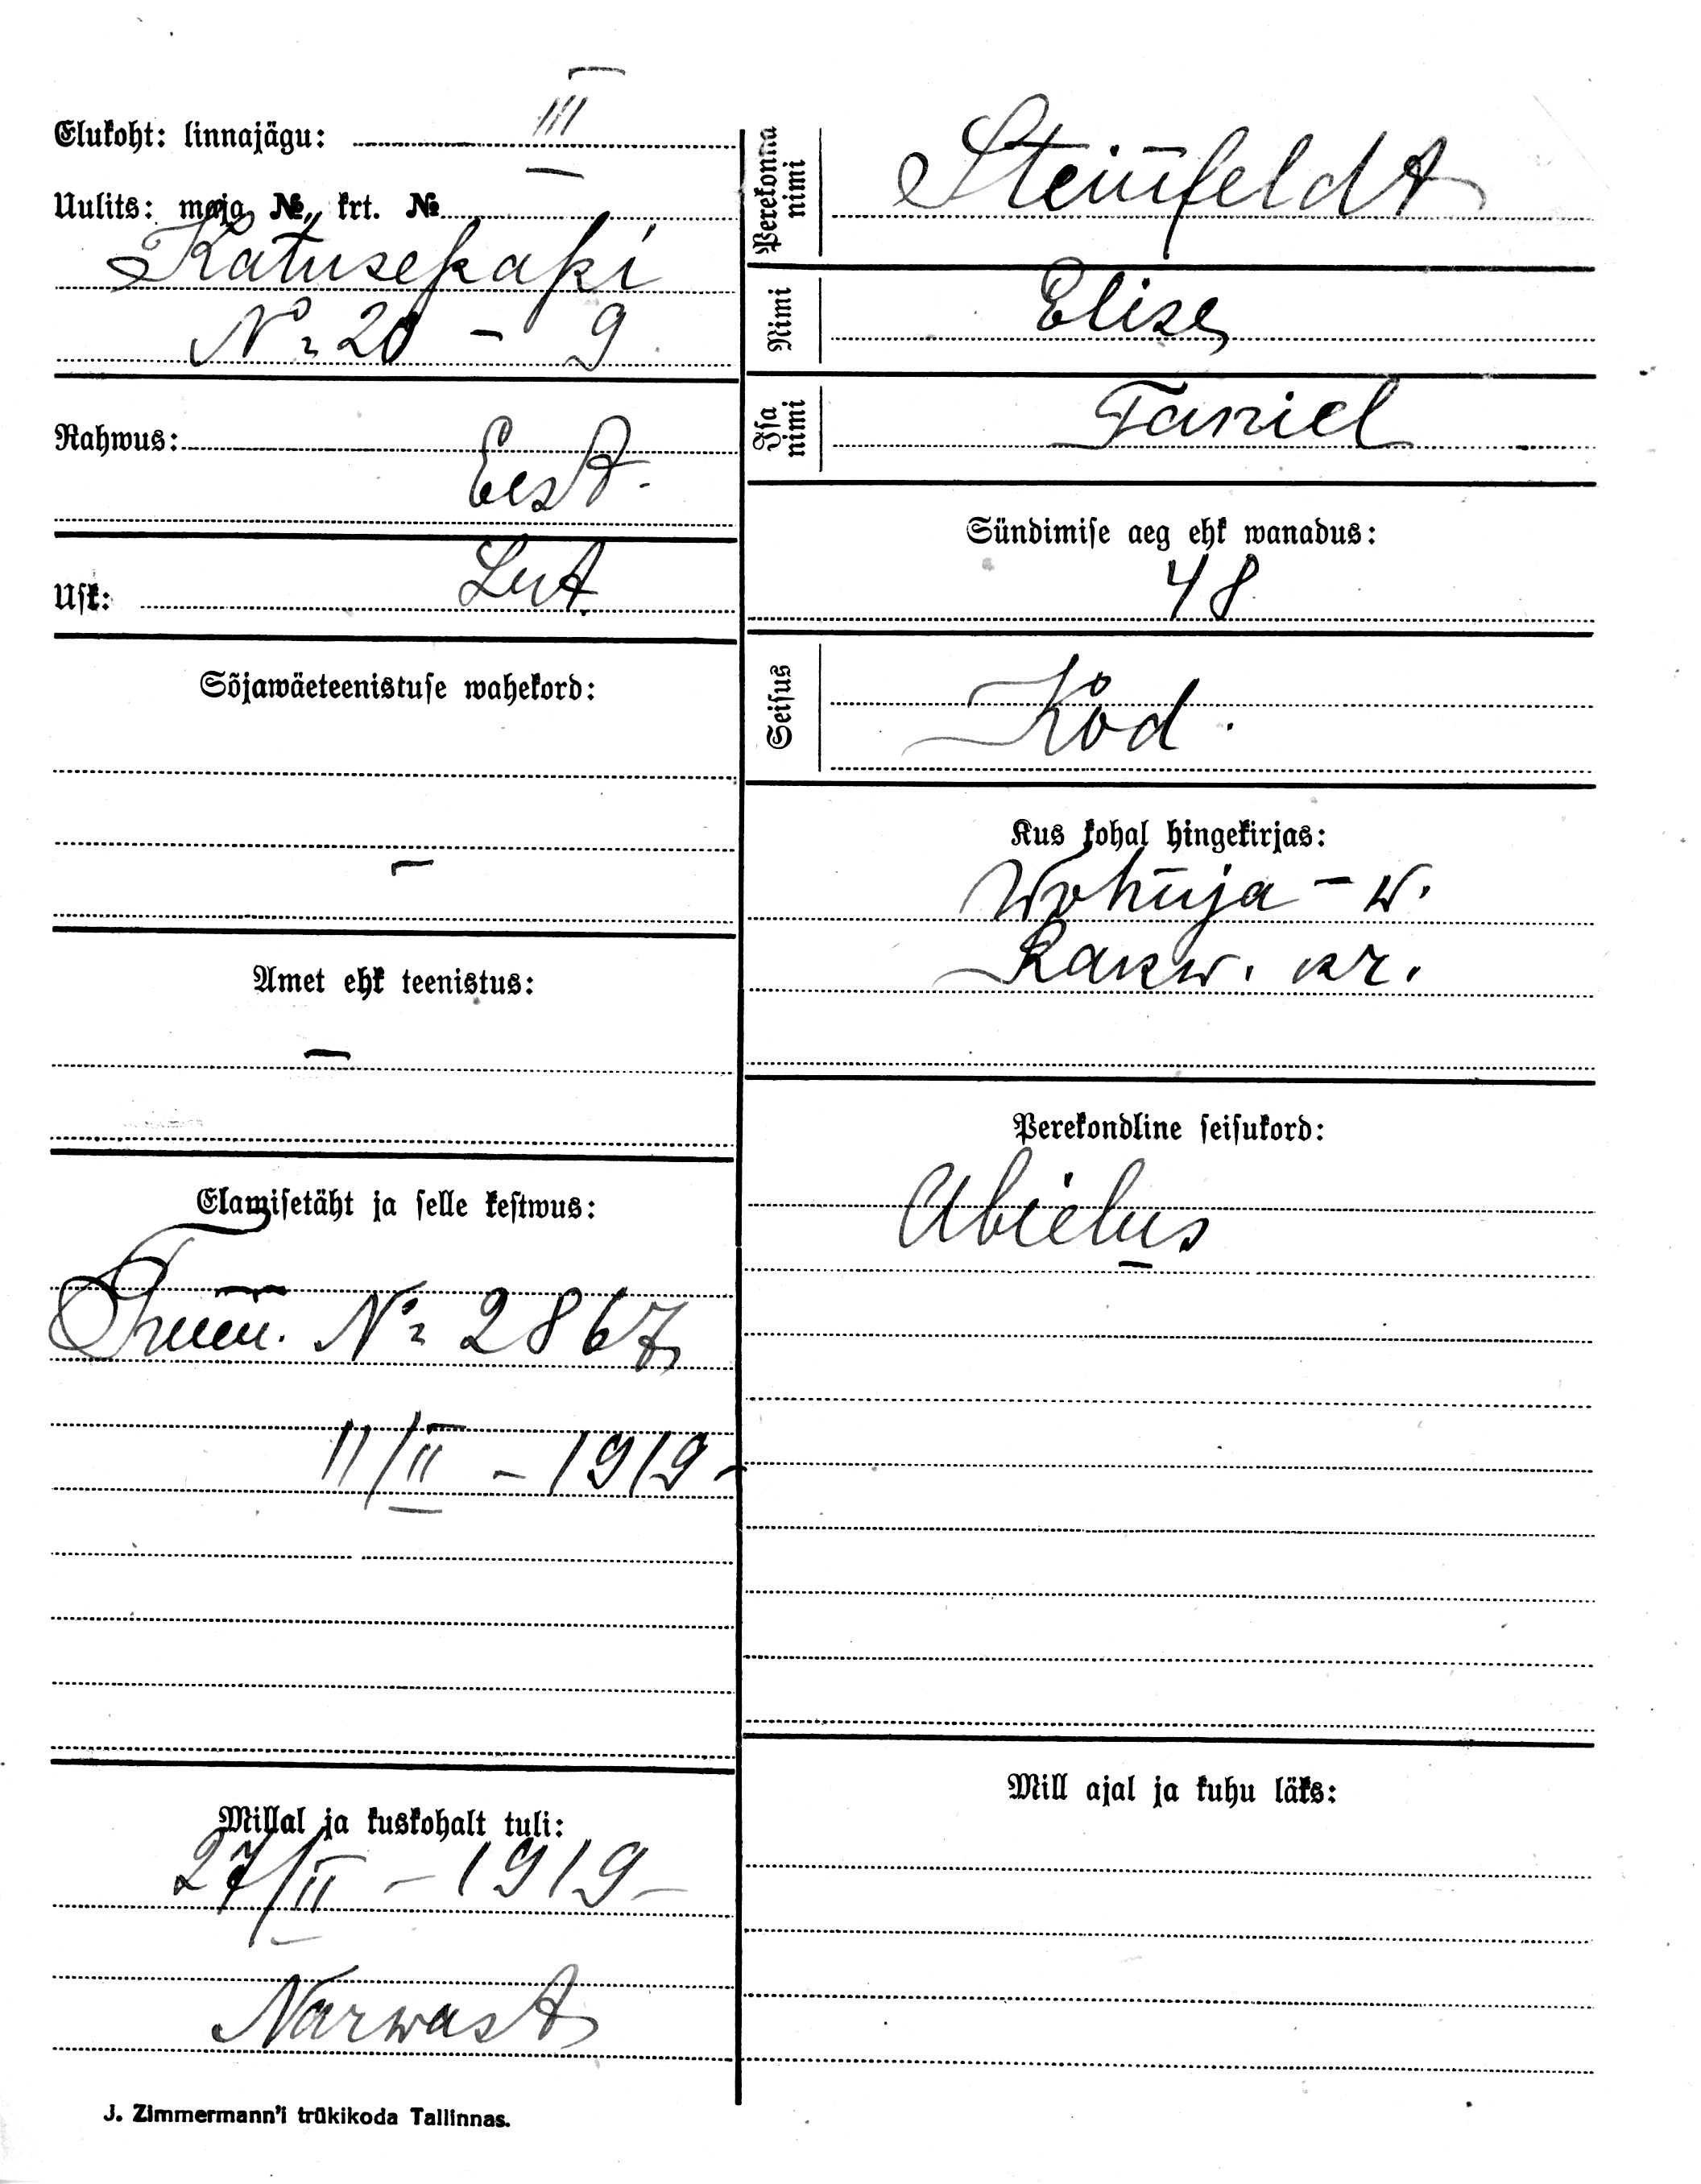 Elukoht: linnajägu: III
Uulits: maja №, krt. №
Katusepapi
№ 20 – 9
Rahwus:
Eest.
Usk: Lut.
Sõjawäeteenistuse wahekord:
–
Amet ehk teenistus:
–
Elamisetäht ja selle kestwus:
№ 2867
11/II – 1919 –
Millal ja kuskohalt tuli:
27/II – 1919 –
Narwast
J. Zimmermann'i trükikoda Tallinnas.
Perekonna nimi
Steinfeldt
Nimi
Elise
Isa nimi
Taniel
Sündimise aeg ehk wanadus:
48
Seisus
Kod.
Kus kohal hingekirjas:
Wohnja – w.
Rakw. kr.
Perekondline seisukord:
Abielus
Mill ajal ja kuhu läks: